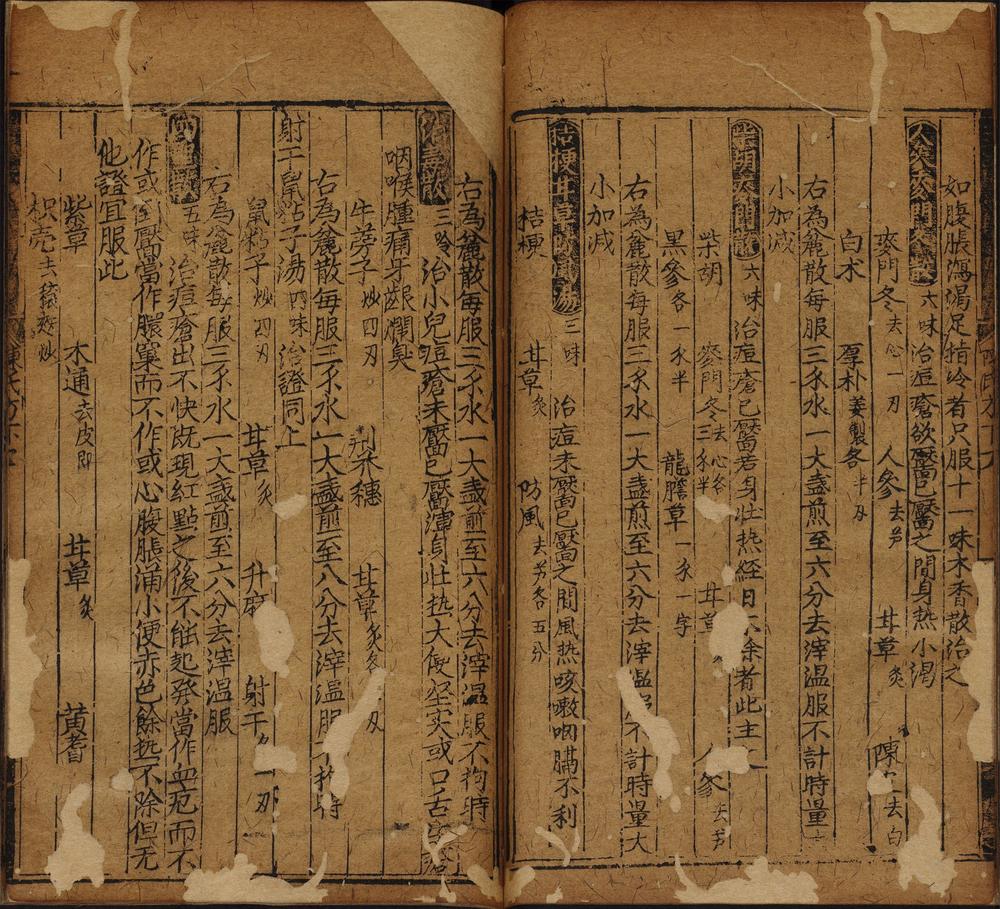 如腹脹瀉渴足指冷者只服十一味木香散治之
人參麥門冬散 六味 治痘瘡欲靨已靨之間身热小渴
麥門冬去心一刃 人參去芦 甘草炙 陳 去白
白术 厚朴姜製各半刃
右為麄散每服三个水一大盞煎至六分去滓温服不計時量大
小加减
柴胡麥門散 六味 治痘瘡已靨若身壮热経日不除者此主
柴胡 麥門冬去心各三个半 甘草 人參去芦
黑參各一个半 龍膽草一个一字
右為麄散每服三个水一大盞煎至六分去滓温服不計時量大
小加减
桔梗甘草防風湯 三味 治痘未靨已靨之間風热咳嗽咽膈不利
桔梗 甘草炙 防風去芦各五分
右為麄散每服三个水一大盞煎至六分去滓温服不拘時
散 三味 治小兒痘瘡未靨已靨渾身壮热大便坚实或口舌
咽喉腫痛牙齦潤臭
牛蒡子炒四刃 荆芥穗 甘草炙各 刃
右為麄散每服三个水一大盞煎至八分去滓温服不拘時
射干鼠粘子湯 四味 治證同上
鼠粘子炒四刃 甘草炙 升麻 射干各一刃
右為麄散每服三个水一大盞煎至六分去滓温服
散 五味 治痘瘡出不快既現紅點之後不能起發當作血疱而不
作或 靨當作膿窠而不作或心腹脹滿小便赤色餘热不除但无
他證宜服此
紫草 木通去皮節 甘草炙 黄耆
枳壳去穰麩炒